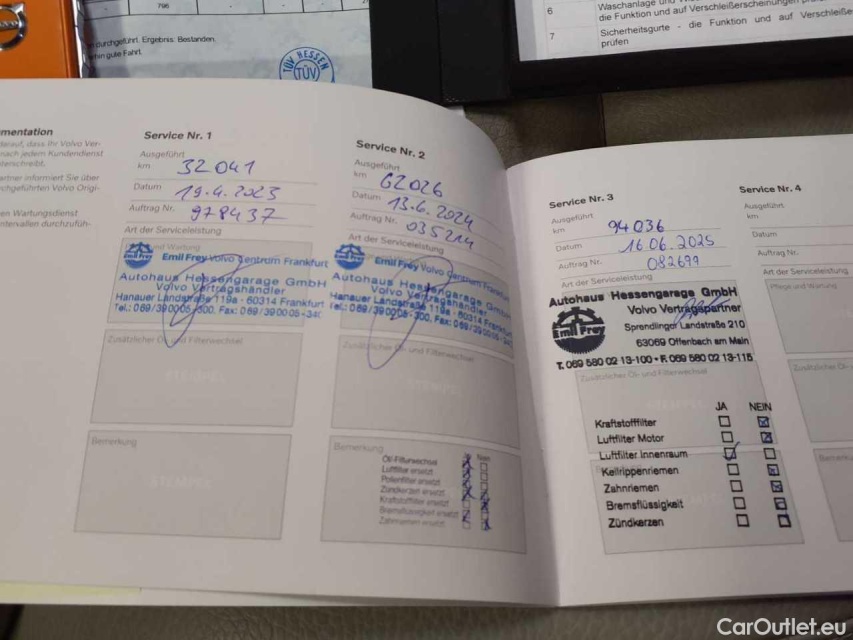 796
durchgeführt. Ergebnis: Bestanden.
gute Fahrt.
TÜV HESSEN
TÜV
6
Waschanlage und
die Funktion und auf Verschleißerscheinungen
7
Sicherheitsgurte - die Funktion und auf Verschleiße
prüfen
mentation
darauf, dass Ihr Volvo Ver-
nach jedem Kundendienst
artner informiert Sie über
chgeführten Volvo Origi-
en Wartungsdienst
ntervallen durchzufüh-
Service Nr. 1
Ausgeführt
km 32041
Datum 19.4.2023
Auftrag Nr. 978437
Art der Serviceleistung
und Wartung
Emil Frey
Emil Frey Volvo Centrum Frankfurt
Autohaus Hessengarage GmbH
Volvo Vertragshändler
Hanauer Landstraße 119a · 60314 Frankfurt
Tel.: 069/390005-300, Fax: 069/390005-340
Zusätzlicher Öl- und Filterwechsel
STEMPEL
Bemerkung
STEMPEL
Service Nr. 2
Ausgeführt
km 62026
Datum 13.6.2024
Auftrag Nr. 035214
Art der Serviceleistung
Emil Frey
Emil Frey Volvo Centrum Frankfurt
Autohaus Hessengarage GmbH
Volvo Vertragshändler
Hanauer Landstraße 119a · 60314 Frankfurt
Tel.: 069/390005-300, Fax: 069/390005-34
Zusätzlicher Öl- und Filterwechsel
Bemerkung
Ja Nein
Öl-Filterwechsel
Luftfilter ersetzt
Pollenfilter ersetzt
Zündkerzen ersetzt
Kraftstofffilter ersetzt
Bremsflüssigkeit ersetzt
Zahnriemen ersetzt
Service Nr. 3
Ausgeführt
km 94036
Datum 16.06.2025
Auftrag Nr. 082699
Art der Serviceleistung
Autohaus Hessengarage GmbH
Volvo Vertragspartner
Emil Frey
Sprendlinger Landstraße 210
63069 Offenbach am Main
T. 069 580 02 13-100 · F. 069 580 02 13-115
Zusätzlicher Öl- und Filterwechsel
JA NEIN
Kraftstofffilter
Luftfilter Motor
Luftfilter Innenraum
Keilrippenriemen
Zahnriemen
Bremsflüssigkeit
Zündkerzen
Service Nr. 4
Ausgeführt
km
Datum
Auftrag Nr.
Art der Serviceleistung
Pflege und Wartung
Zusätzlicher Öl-
Bemerku
CarOutlet.eu